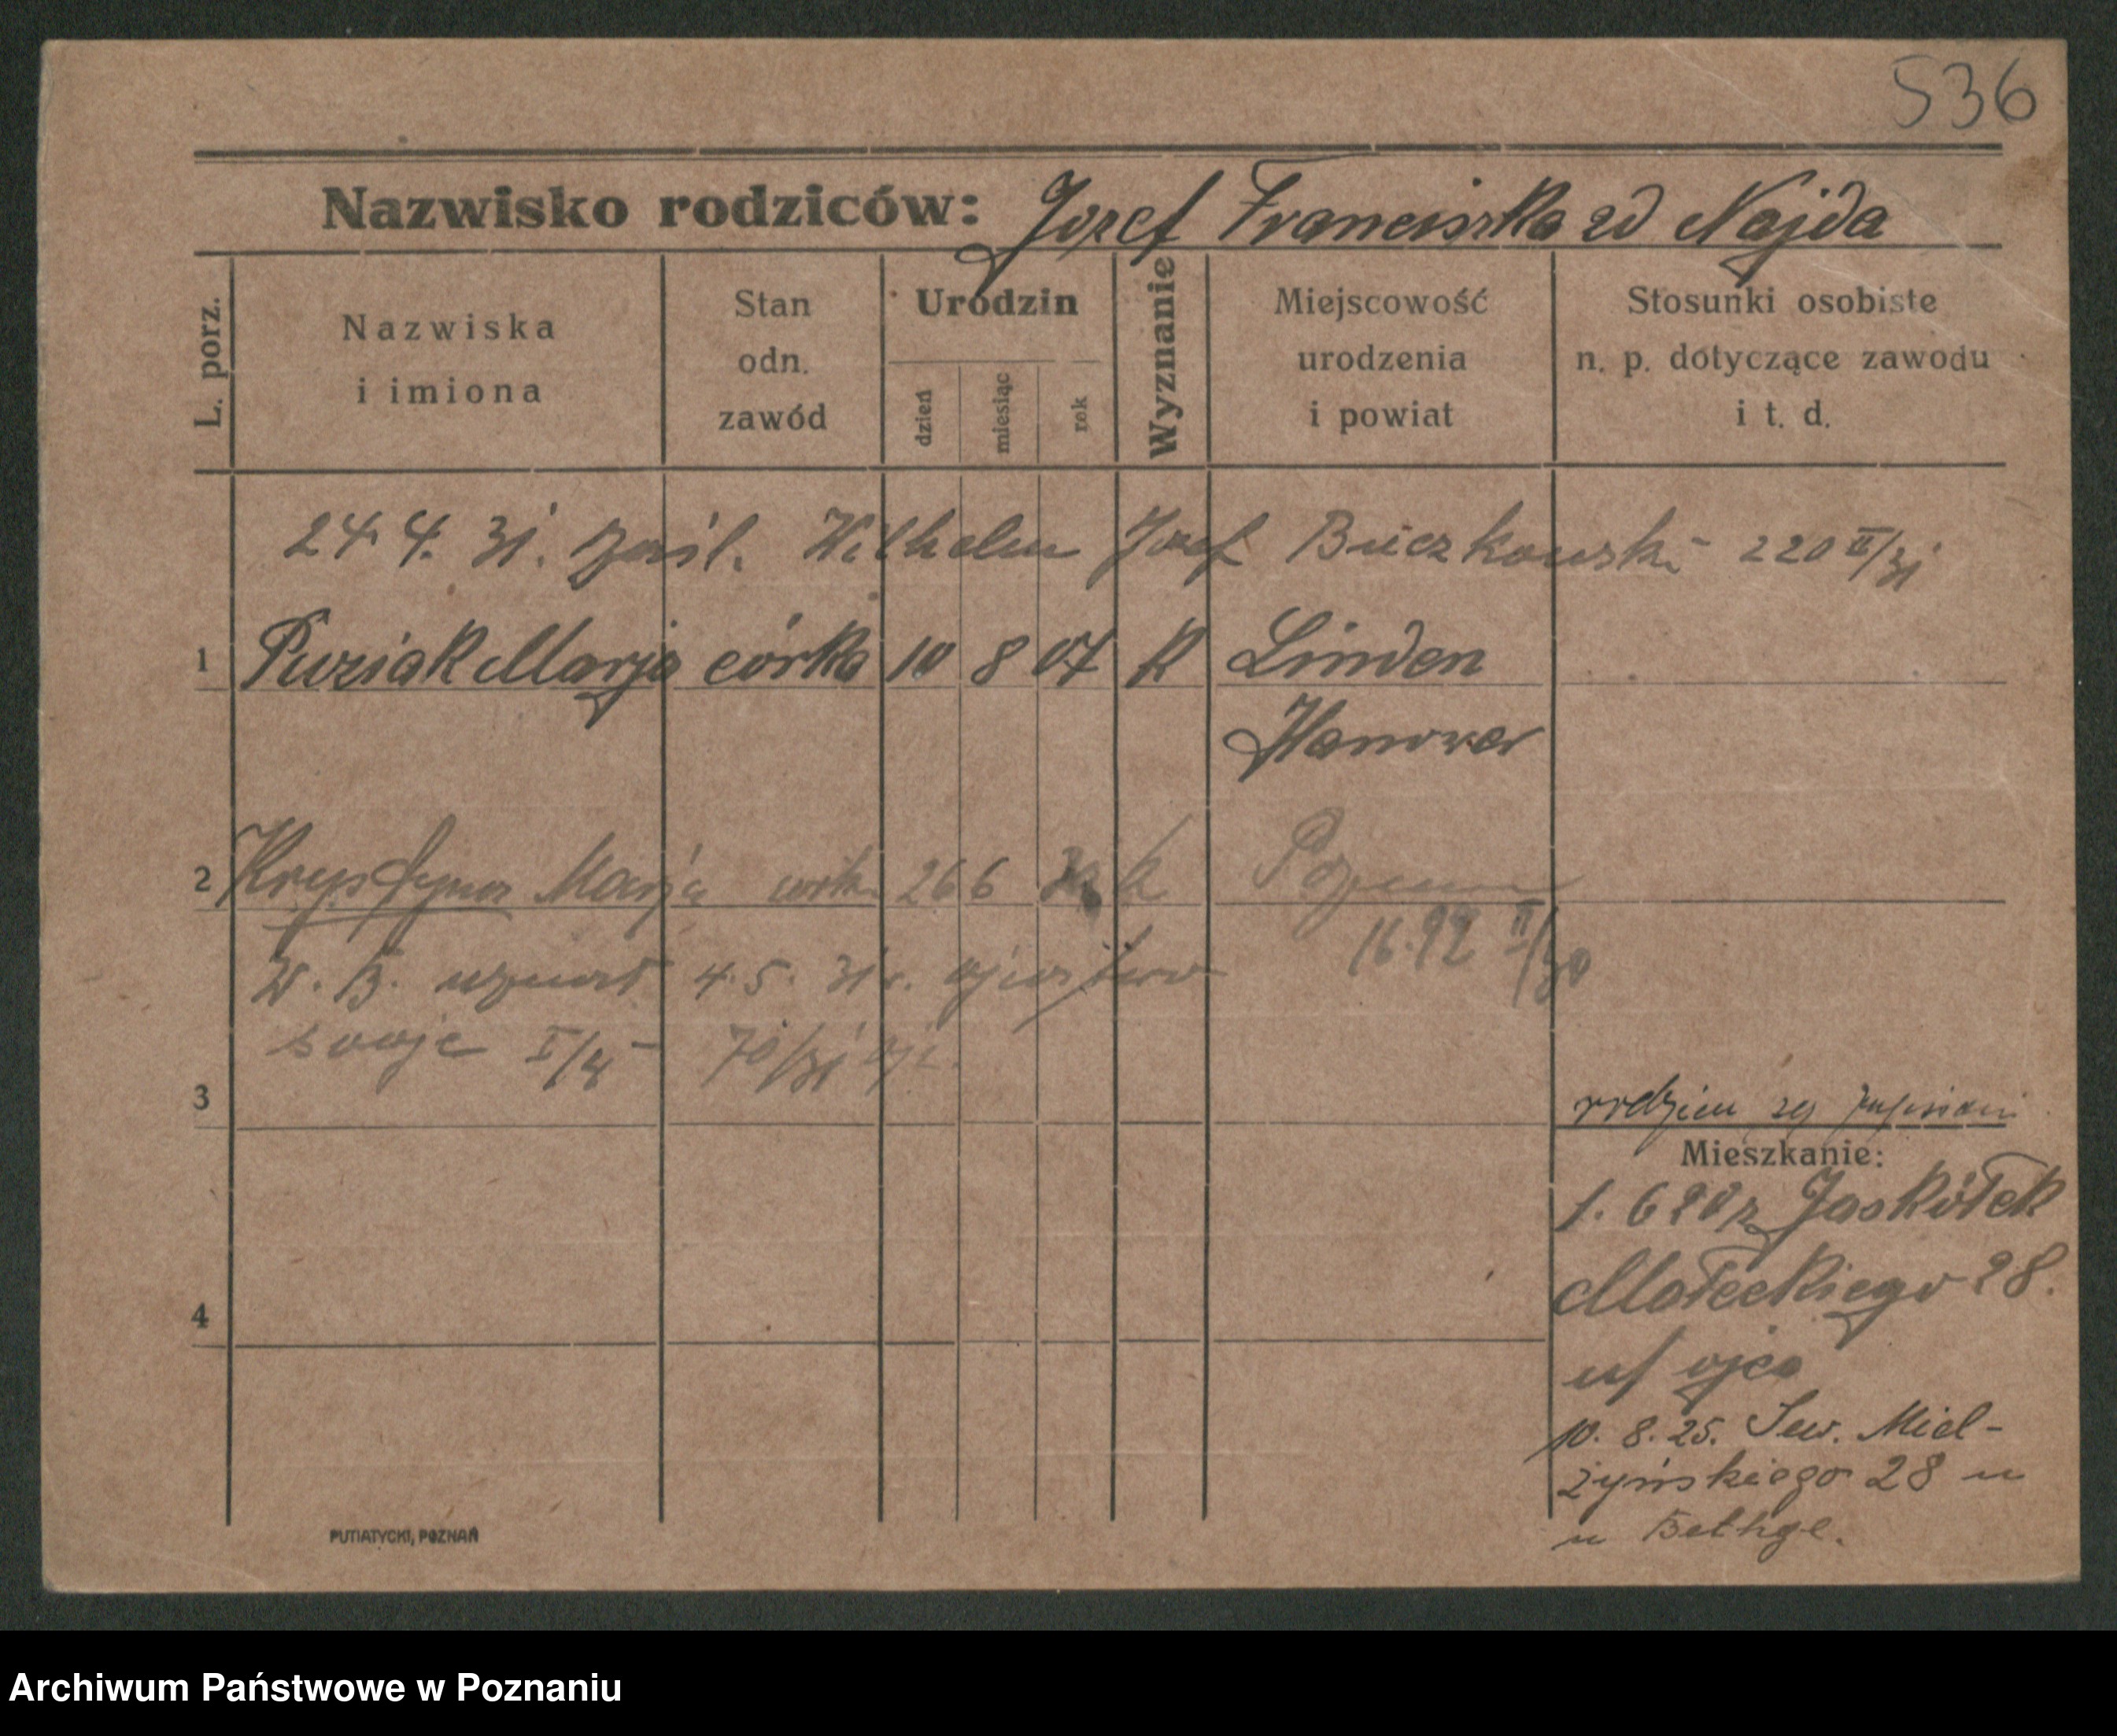 536
Nazwisko rodziców: Jozef Franciszka zd Najda
L. porz.
Nazwiska
i imiona
Stan
odn.
zawód
Urodzin
dzień
miesiąc
rok
Wyznanie
Miejscowość
urodzenia
i powiat
Stosunki osobiste
n. p. dotyczące zawodu
i t. d.
24. 4. 31. zaśl. Wilhelm Josef Buczkowski 220 II/31
1 Puziak Marja córka 10 8 07 K Linden
Hanower
2 Krystyna Marja córk. 26 6 K Poznan
16.92 II/30
W. B. uznał 4. 5. 31 r. ojcostwo
swoje I/4 - 70/31
3
rodzice są zapisani
Mieszkanie:
1. 6 Jaskółek
Małeckiego 28.
ojca
10. 8. 25. Sew. Miel-
żyńskiego 28 u
u Bethge.
4
PUTIATYCKI, POZNAŃ
Archiwum Państwowe w Poznaniu